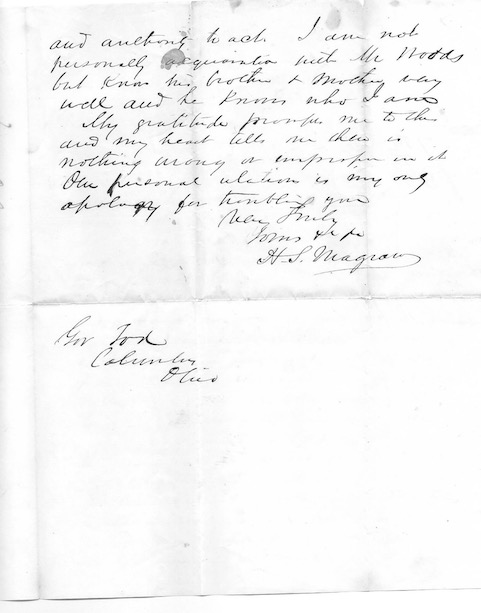 and authority to act. I am not
personally acquainted with Mr Woods
but know his brother & mother very
well and he knows who I am
My gratitude prompts me to this
and my heart tells me there is
nothing wrong or improper in it
Our personal relations is my only
apology for troubling you
Very Truly
Yours
H. S. Magraw
Gov Tod
Columbus
Ohio